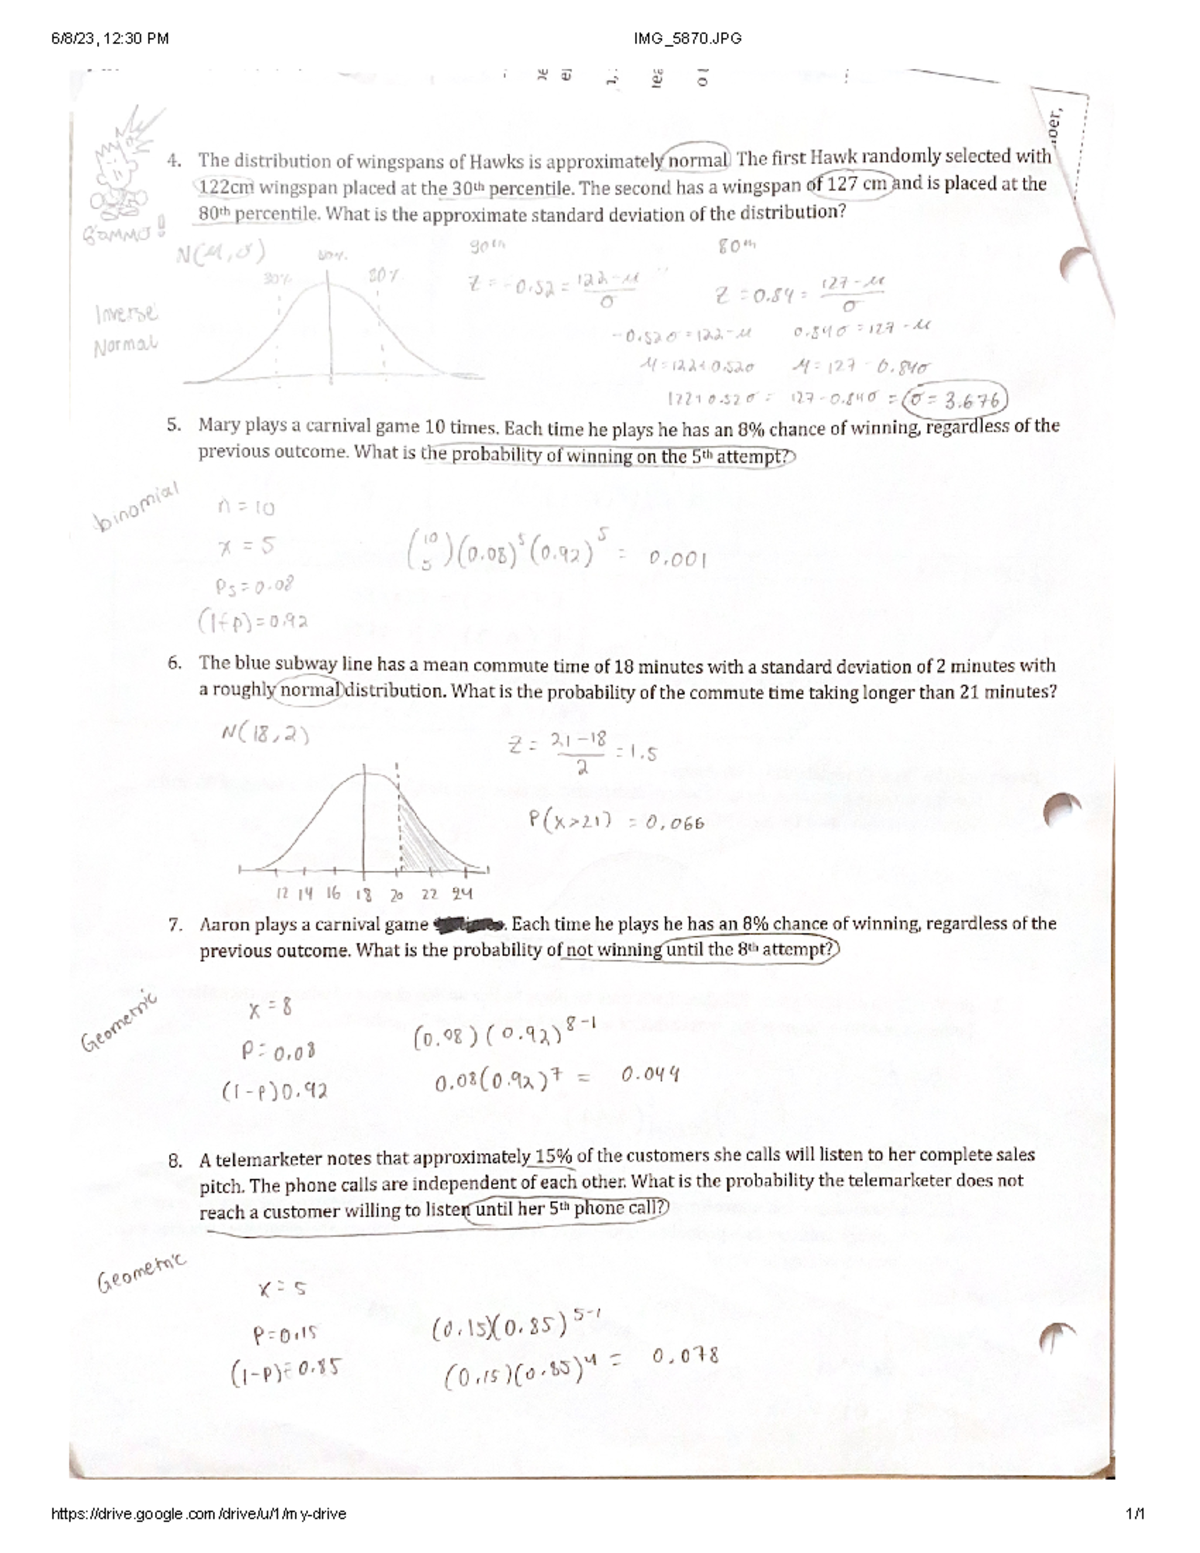 6/8/23, 12:30 PM
IMG_5870.JPG
4. The distribution of wingspans of Hawks is approximately normal. The first Hawk randomly selected with
122cm wingspan placed at the 30th percentile. The second has a wingspan of 127 cm and is placed at the
80th percentile. What is the approximate standard deviation of the distribution?
N(μ,σ)
30%
80%
80th
Inverse
Normal
Z = -0.52 = 122-μ / σ
Z = 0.84 = 127-μ / σ
-0.52σ = 122-μ
0.84σ = 127-μ
μ = 122+0.52σ
μ = 127-0.84σ
122+0.52σ = 127-0.84σ = σ = 3.676
5. Mary plays a carnival game 10 times. Each time he plays he has an 8% chance of winning, regardless of the
previous outcome. What is the probability of winning on the 5th attempt?
binomial
n = 10
x = 5
Ps = 0.08
(1-p) = 0.92
(10 5)(0.08)^5(0.92)^5 = 0.001
6. The blue subway line has a mean commute time of 18 minutes with a standard deviation of 2 minutes with
a roughly normal distribution. What is the probability of the commute time taking longer than 21 minutes?
N(18,2)
Z = 21-18 / 2 = 1.5
P(x>21) = 0.066
12 14 16 18 20 22 24
7. Aaron plays a carnival game . Each time he plays he has an 8% chance of winning, regardless of the
previous outcome. What is the probability of not winning until the 8th attempt?
Geometric
x = 8
P = 0.08
(1-P)0.92
(0.08)(0.92)^8-1
0.08(0.92)^7 = 0.044
8. A telemarketer notes that approximately 15% of the customers she calls will listen to her complete sales
pitch. The phone calls are independent of each other. What is the probability the telemarketer does not
reach a customer willing to listen until her 5th phone call?
Geometric
x = 5
P = 0.15
(1-P) = 0.85
(0.15)(0.85)^5-1
(0.15)(0.85)^4 = 0.078
https://drive.google.com/drive/u/1/my-drive
1/1